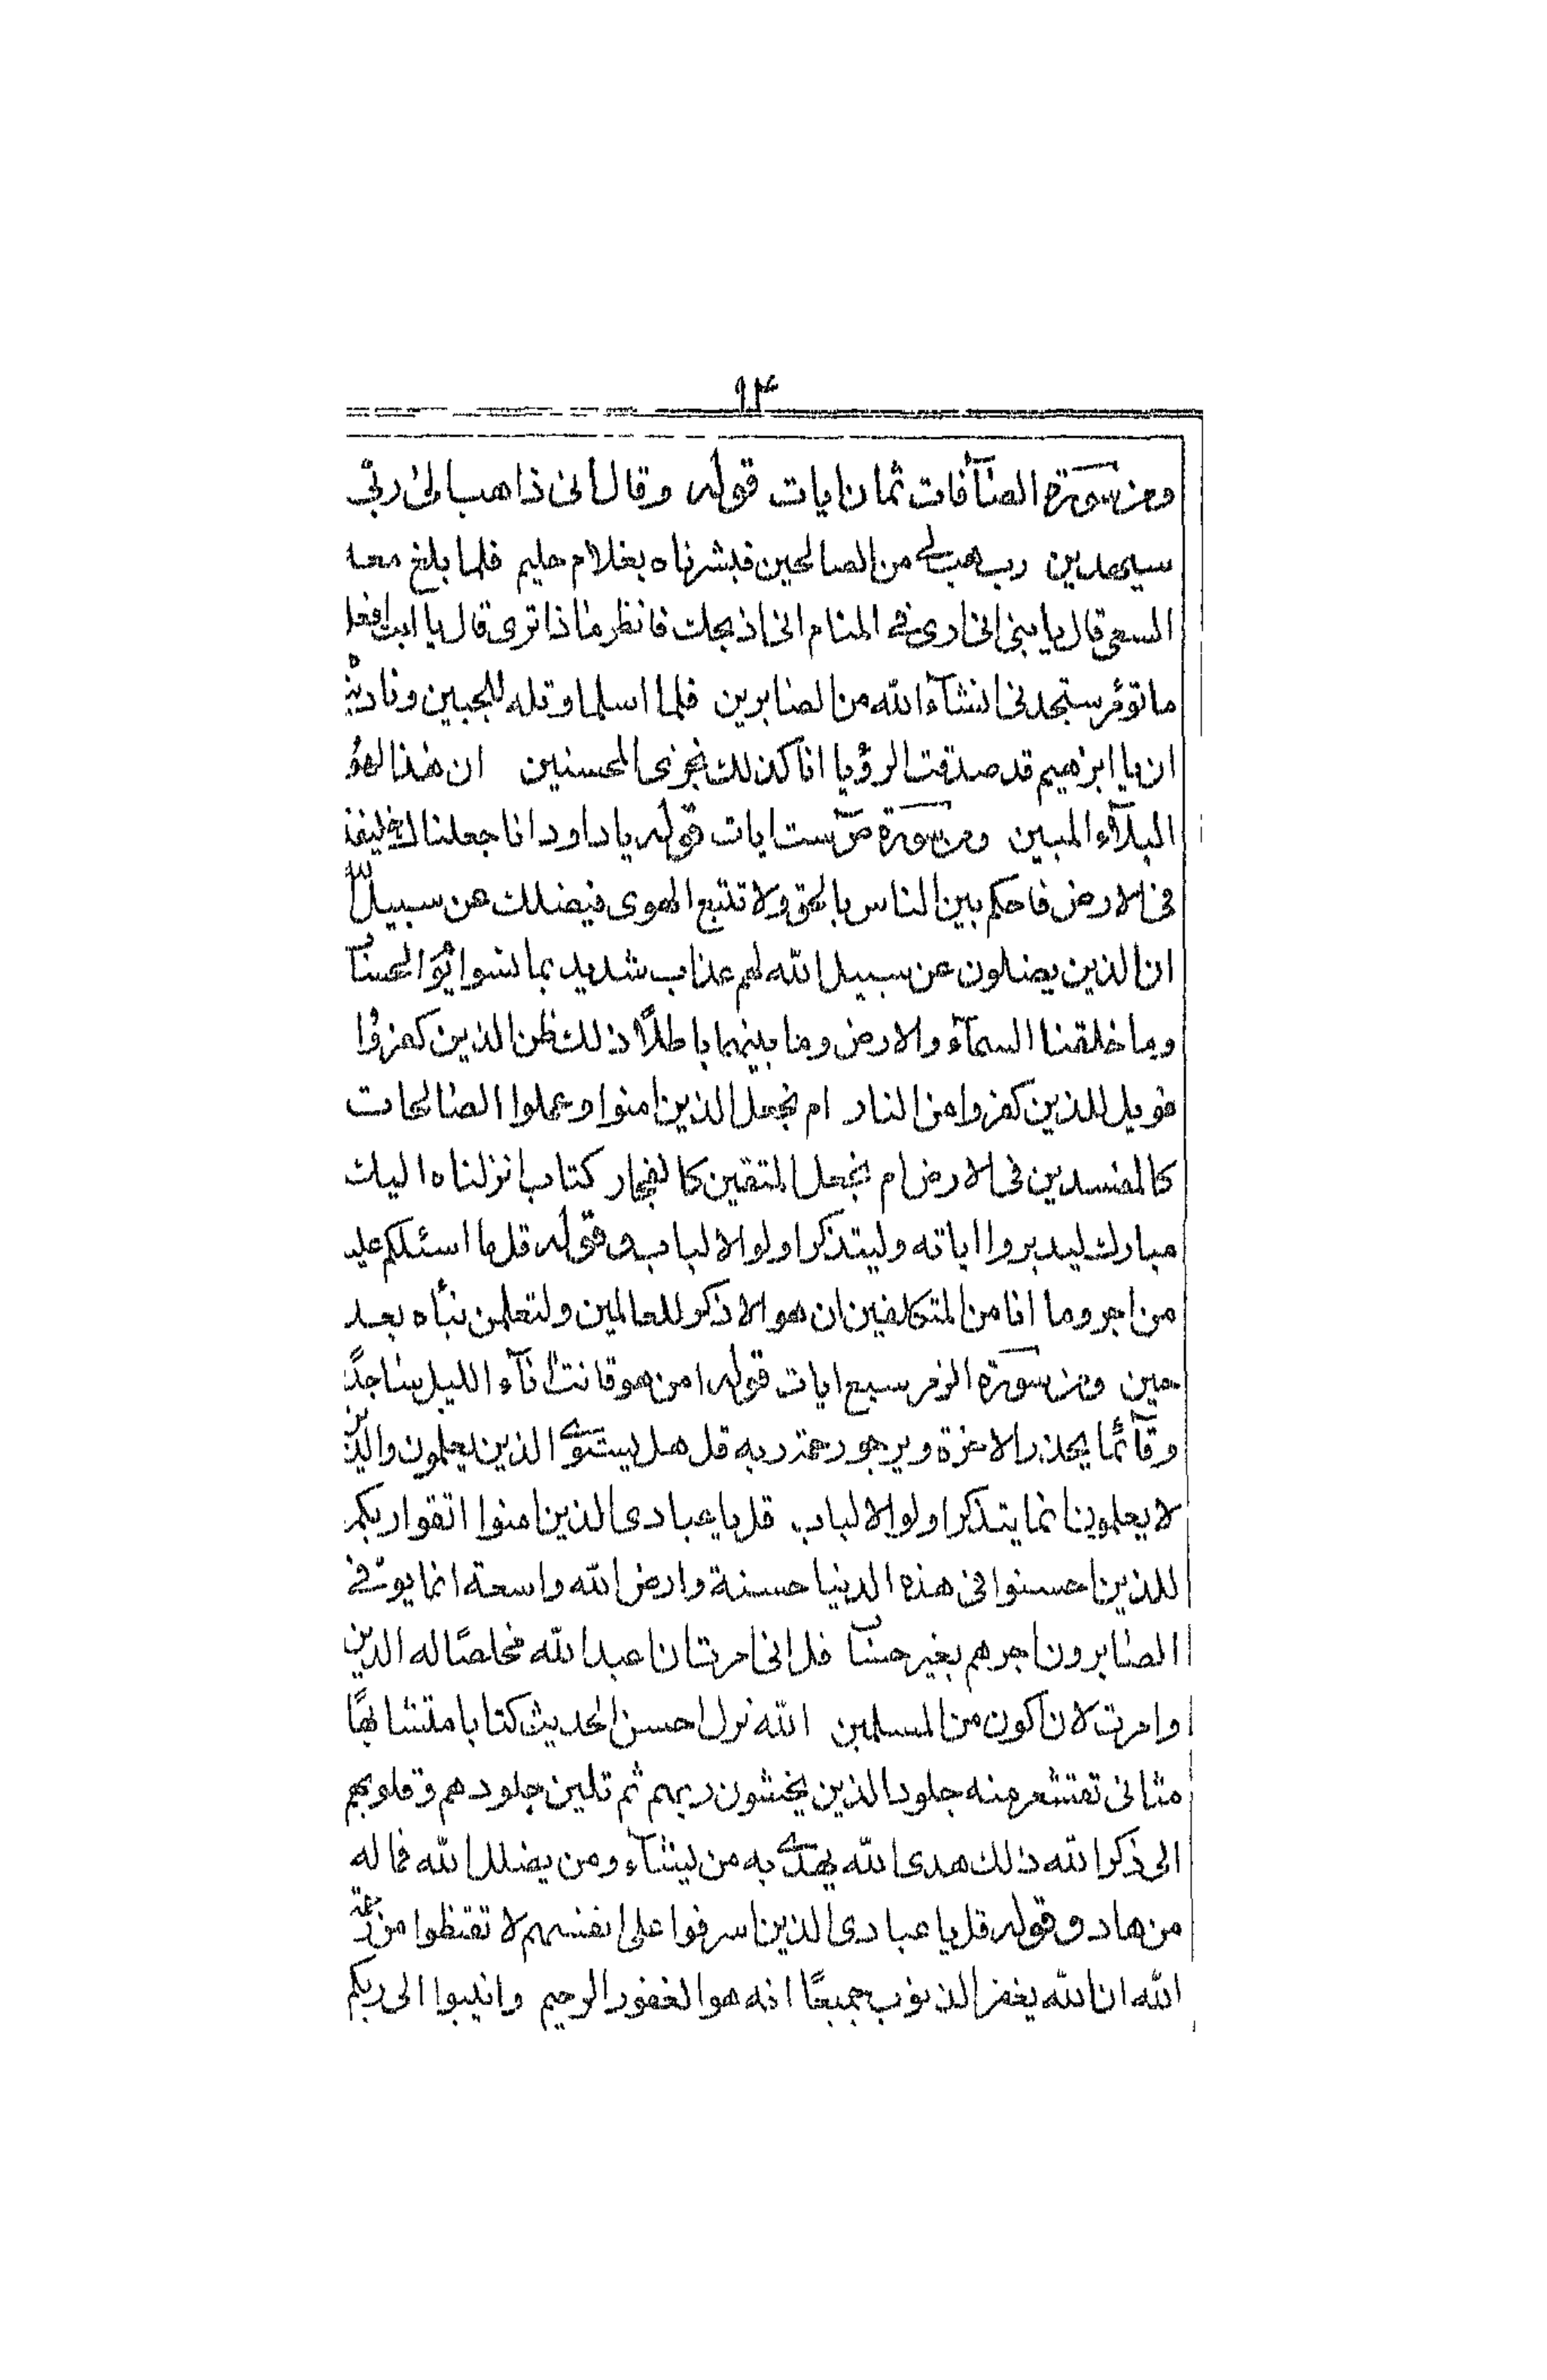 ٦٤
ومن سورة الصآفات ثمان ايات قوله وقال انى ذاهب الى ربى
سيهدين رب هب لى من الصالحين فبشرناه بغلام حليم فلما بلغ معه
السعى قال يا بنى انى ارى فى المنام انى اذبحك فانظر ماذا ترى قال يا ابت افعل
ما تؤمر ستجدنى انشآء الله من الصابرين فلما اسلما وتله للجبين وناديناه
ان يا ابرهيم قد صدقت الرؤيا انا كذلك نجزى المحسنين ان هذا لهو
البلآء المبين ومن سورة ص ست ايات قوله يا داود انا جعلناك خليفة
فى الارض فاحكم بين الناس بالحق ولا تتبع الهوى فيضلك عن سبيل الله
ان الذين يضلون عن سبيل الله لهم عذاب شديد بما نسوا يوم الحساب
وما خلقنا السمآء والارض وما بينهما باطلًا ذلك ظن الذين كفروا
فويل للذين كفروا من النار ام نجعل الذين امنوا وعملوا الصالحات
كالمفسدين فى الارض ام نجعل المتقين كالفجار كتاب انزلناه اليك
مبارك ليدبروا اياته وليتذكر اولو الالباب وقوله قل ما اسئلكم عليه
من اجر وما انا من المتكلفين ان هو الا ذكر للعالمين ولتعلمن نبأه بعد
حين ومن سورة الزمر سبع ايات قوله امن هو قانت انآء الليل ساجدًا
وقآئمًا يحذر الاخرة ويرجو رحمة ربه قل هل يستوى الذين يعلمون والذين
لا يعلمون انما يتذكر اولو الالباب قل يا عبادى الذين امنوا اتقوا ربكم
للذين احسنوا فى هذه الدنيا حسنة وارض الله واسعة انما يوفى
الصابرون اجرهم بغير حساب قل انى امرت ان اعبد الله مخلصًا له الدين
وامرت لان اكون من المسلمين الله نزل احسن الحديث كتابا متشابهًا
مثانى تقشعر منه جلود الذين يخشون ربهم ثم تلين جلودهم وقلوبهم
الى ذكر الله ذلك هدى الله يهدى به من يشآء ومن يضلل الله فما له
من هاد وقوله قل يا عبادى الذين اسرفوا على انفسهم لا تقنطوا من رحمة
الله ان الله يغفر الذنوب جميعًا انه هو الغفور الرحيم وانيبوا الى ربكم